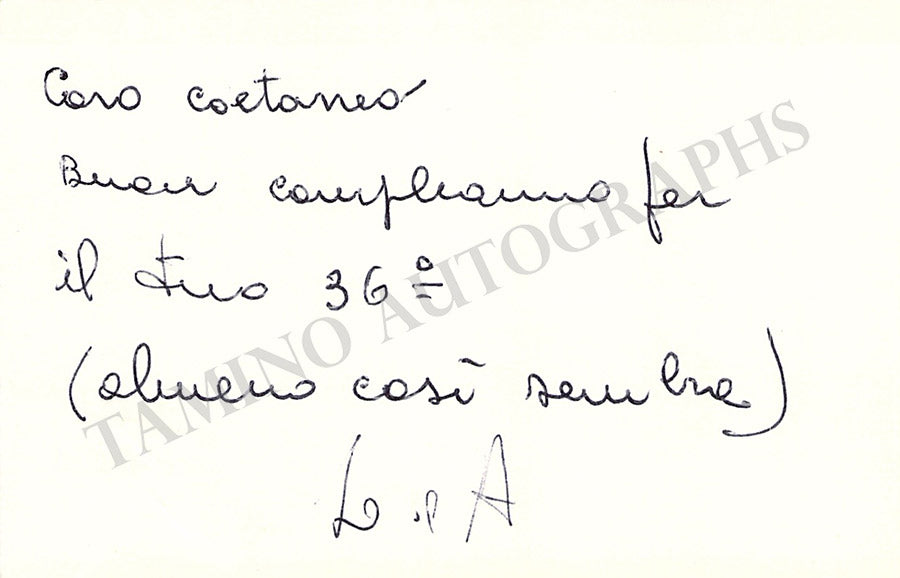 Caro coetaneo
Buon compleanno per
il tuo 36º
(almeno così sembra)
L e A
TAMINO AUTOGRAPHS